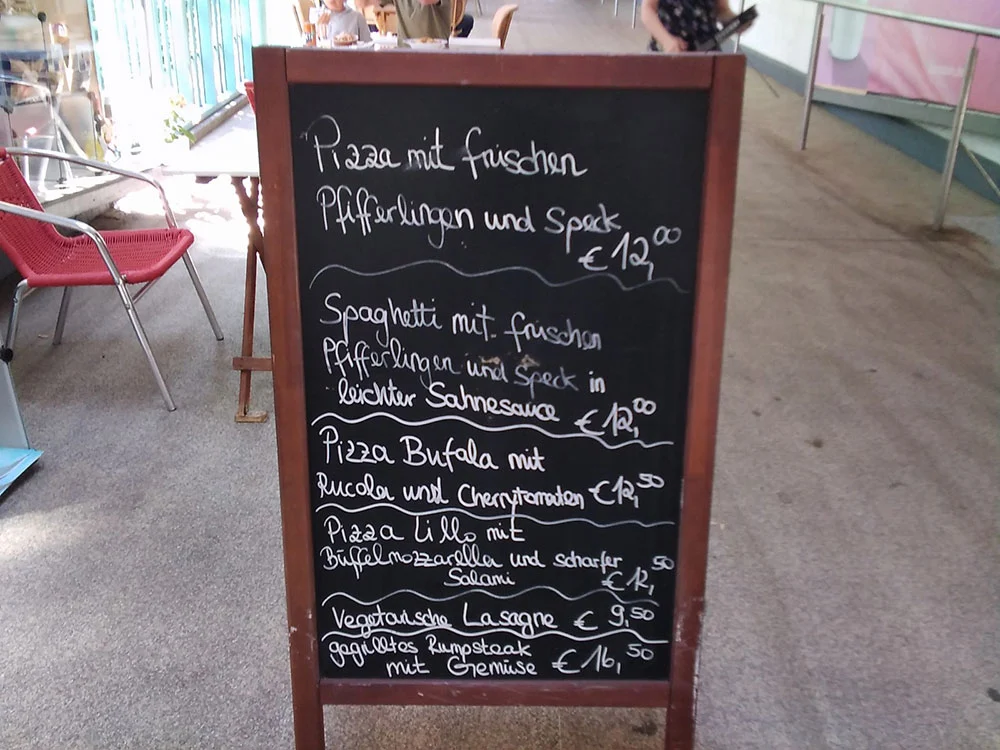 Pizza mit frischen
Pfifferlingen und Speck
€ 12,00
Spaghetti mit frischen
Pfifferlingen und Speck in
leichter Sahnesauce € 12,00
Pizza Bufala mit
Rucola und Cherrytomaten € 12,50
Pizza Lillo mit
Büffelmozzarella und scharfer
Salami € 12,50
Vegetarische Lasagne € 9,50
gegrilltes Rumpsteak
mit Gemüse € 16,50